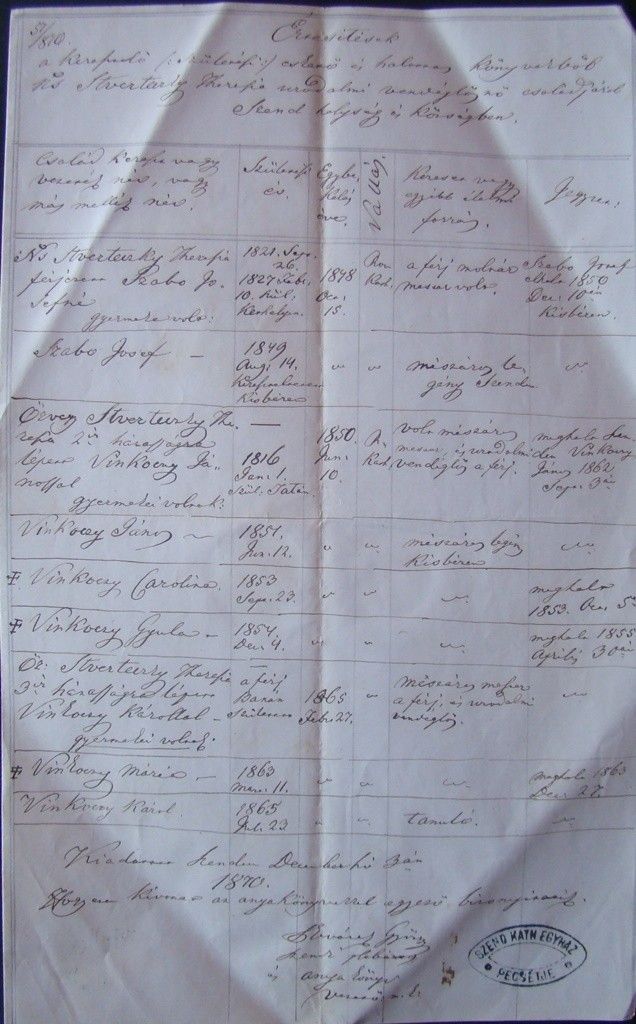 57/870.
Értesítések
a keresztelő (: születési :) eskető és halotti könyvekből
Ns Stverteczky Therezia uradalmi vendéglősnő családjáról
Szend helység és községben.
Család kereszt vagy vezeték név, vagy más mellék név.
Születési év.
Egybekelés éve.
Vallás.
Kereset vagy egyébb élelmi forrás.
Jegyzet.
Ns Stverteczky Therezia férjezve Szabo Jo- sefné
gyermeke volt:
1821. Sept. 26.
1827 Febr. 10.
1848 Oct. 15.
Rom. Kath.
a férj molnár mester volt.
Szabo Josef 1850 Dec. 10én Kisbéren.
Szabo Josef —
1849 Aug. 14. Kisbéren
" "
mészáros legény Szenden
"
Özvegy Stverteczky Therezia 2ik házasságra lépett Vinkoczy Já- nossal
gyermekei voltak:
—
1816 Jan. 1. Szül. Tatán.
1850. Jun. 10.
R. Kath.
volt mészáros mester, és uradalmi vendéglős a férj.
meghalt Szenden Vinkoczy János 1862 Sept. 3án
Vinkoczy János —
1851. Jun. 12.
" "
mészáros legény Kisbéren
"
Vinkoczy Carolina.
1853 Sept. 23.
" " "
meghalt 1853. Oct. 5én
Vinkoczy Gyula —
1854. Dec. 4.
" " "
meghalt 1855 Április 30án
Öz. Stverteczky Therezia 3ik házasságra lépett Vinkoczy Károllal —
gyermekei voltak:
— a férj Barán született
1865 Feb. 27.
"
mészáros mester a férj, és uradalmi vendéglős.
"
Vinkoczy Mária —
1863 Marc. 11.
" " "
meghalt 1863 Dec. 27.
Vinkoczy Károl.
1865 Jul. 23
" "
tanuló.
"
Kiadatott Szenden December hó 3án
1870.
Hogy ezen kivonat az anyakönyvvel egyező bizonyítatik.
szendi plébános
és anyakönyv
vezető m. k.
SZEND KATH EGYHÁZ
PECSÉTJE